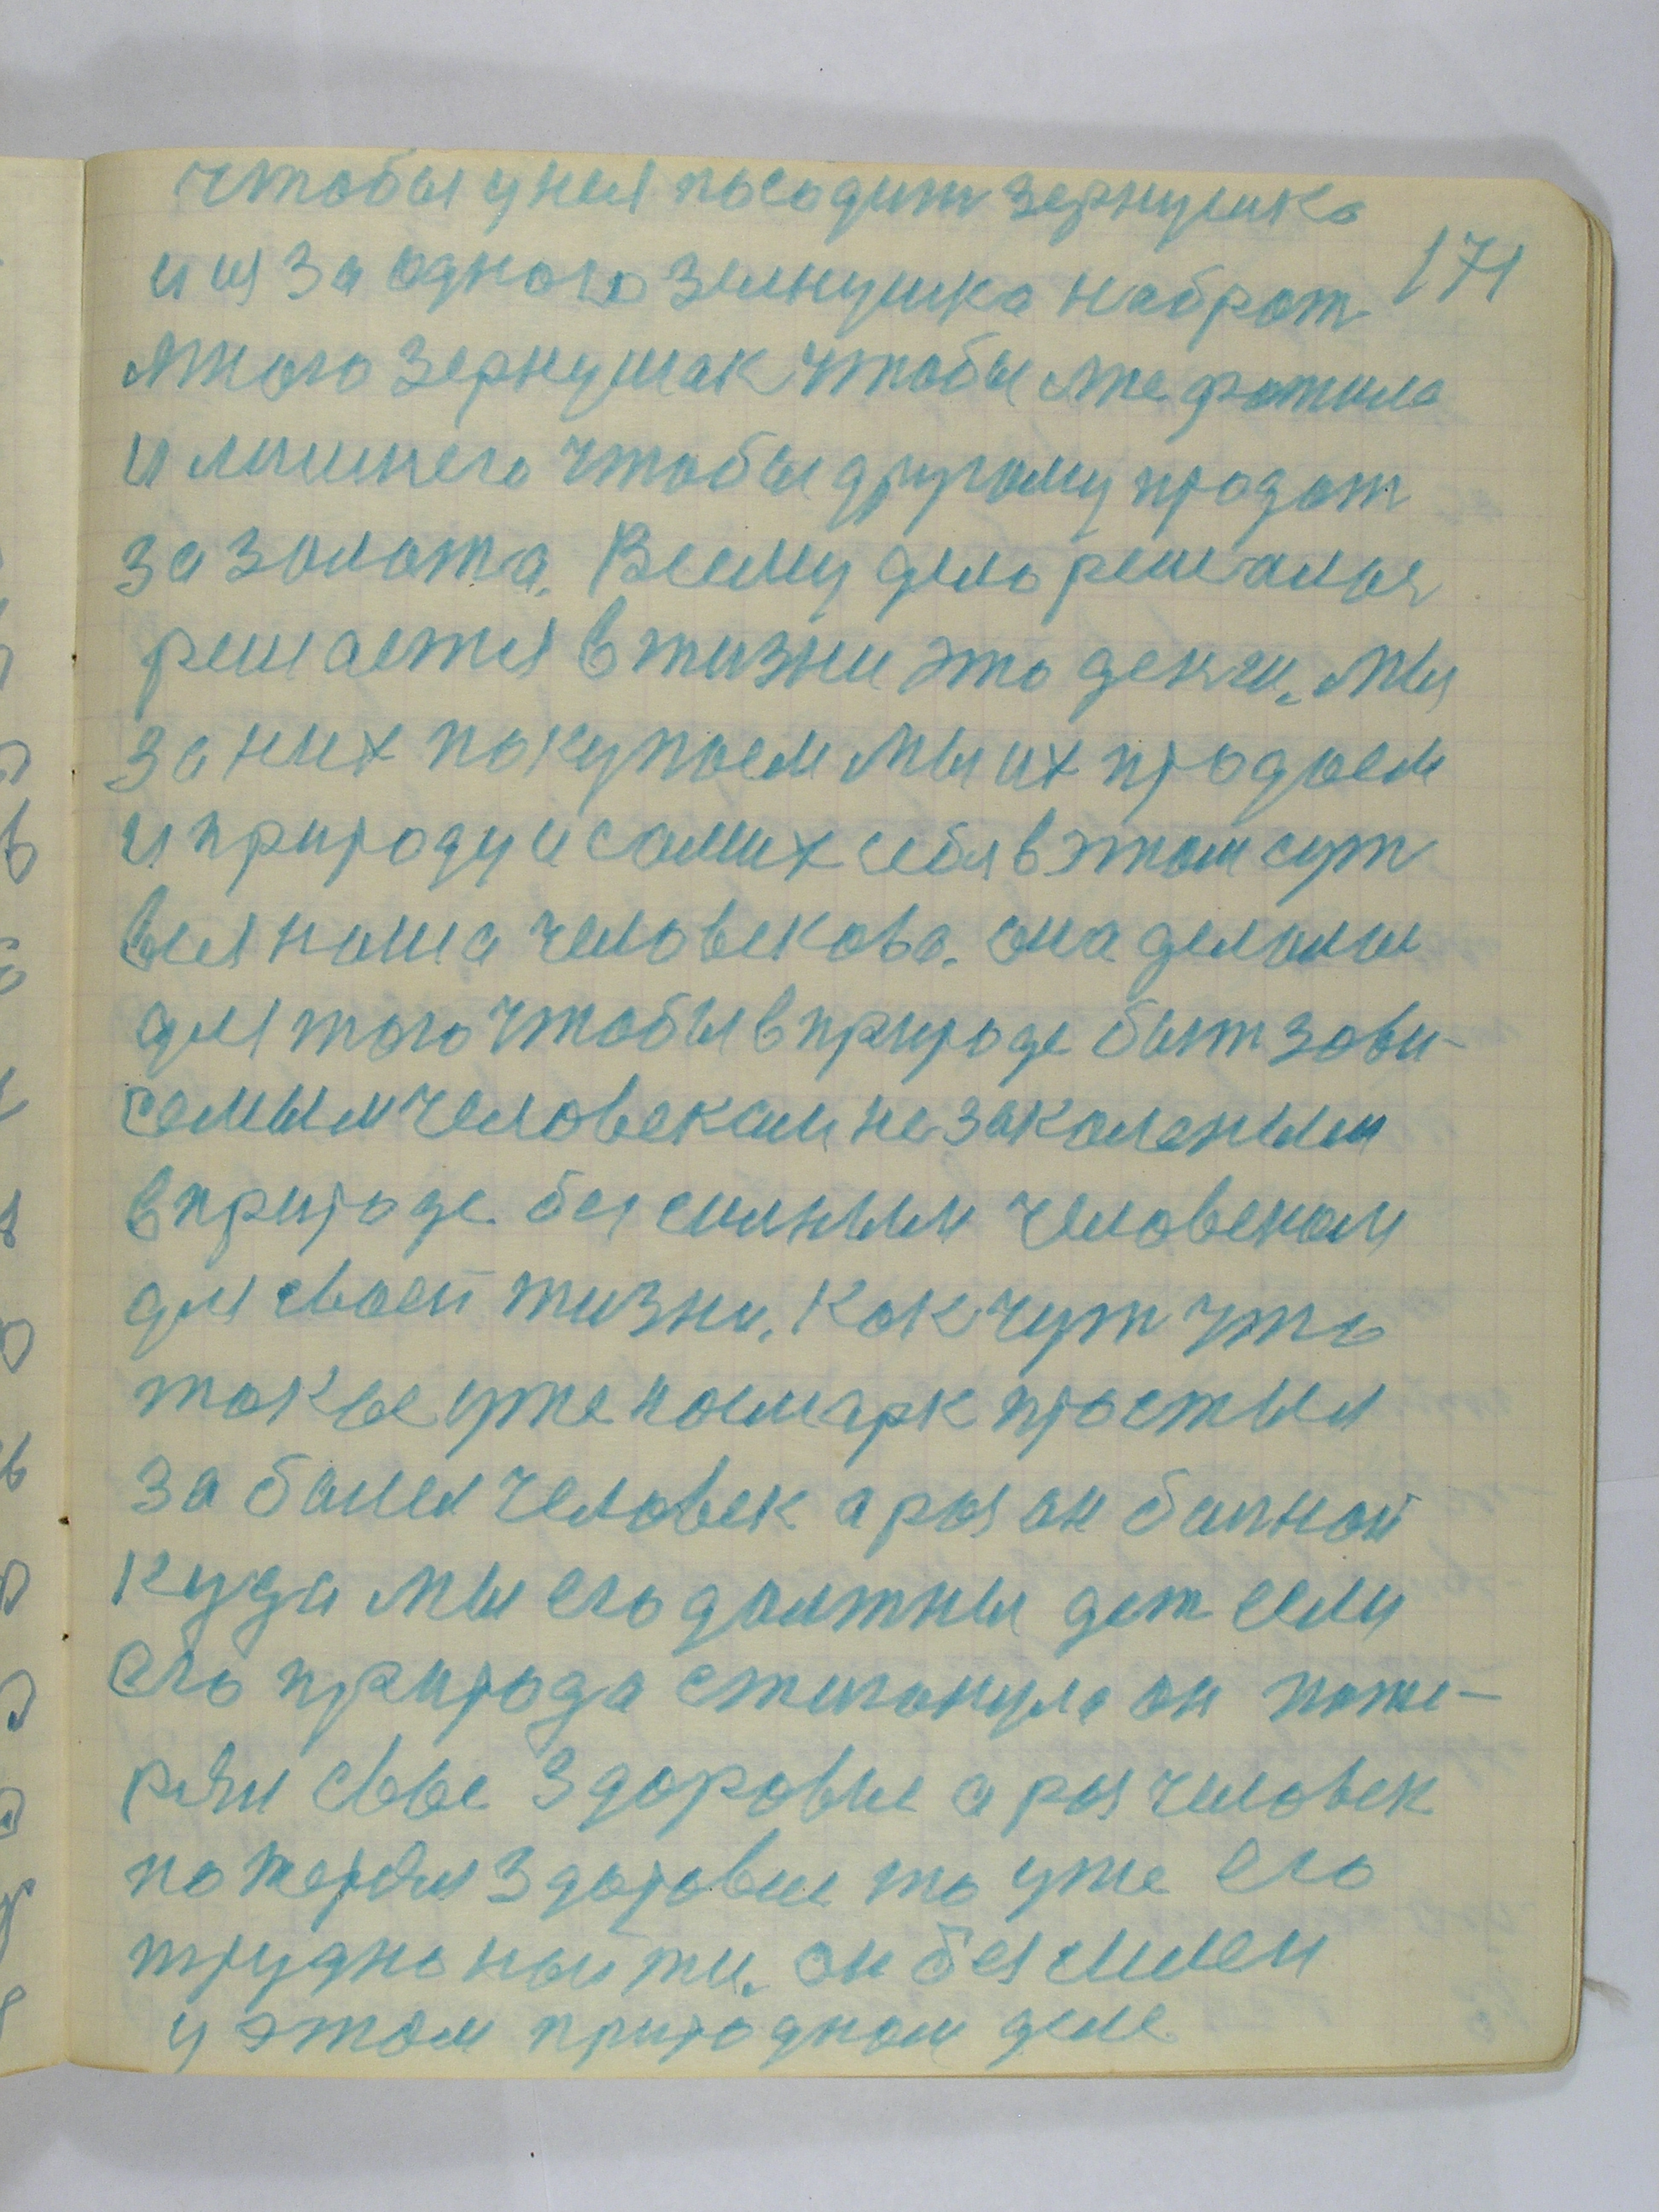 чтобы у нея посадит зернушка
171
и из за одного зелнушка набрат
много зернушак чтобы мне фатила
и лишнего чтобы другому продат
за золата. Всему дело решалася
решается в жизни это денги. Мы
за них покупаем мы их продаем
и природу и самих себя в этом сут
вся наша человекова. она делалас
для того чтобы в природе быт зави-
семым человекам не закаленым
в природе бессилным человеком
для своей жизни. Как чут что
такое уже насмарк простыл
заболел человек а раз он болной
куда мы его должны дет если
его природа стигонула он поте-
рял свое здоровие а раз человек
потерял здоровие то уже его
трудно найти. он безсилен
у этом природном деле